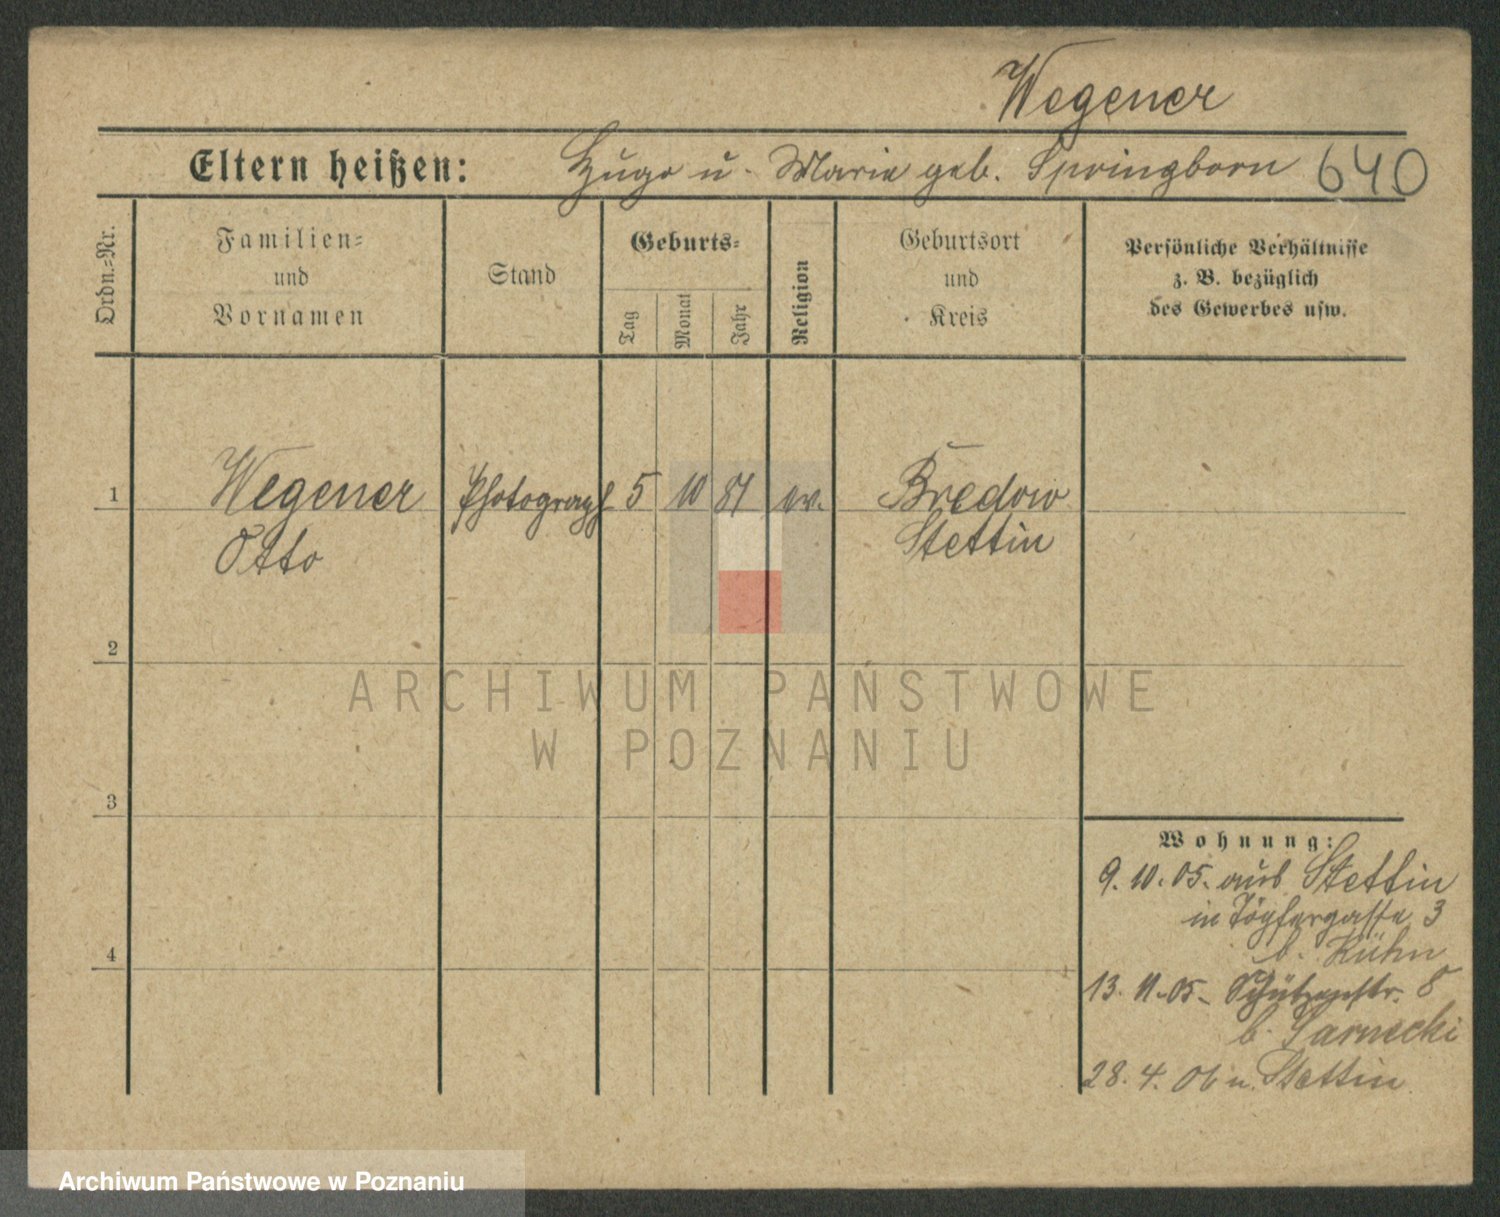 Wegener
Eltern heißen: Hugo u. Marie geb. Springborn 640
Ordn.-Nr.
Familien-
und
Vornamen
Stand
Geburts-
Tag
Monat
Jahr
Religion
Geburtsort
und
Kreis
Persönliche Verhältnisse
z. B. bezüglich
des Gewerbes usw.
1 Wegener Photograph 5 10 87 ev. Bredow
Otto Stettin
2
3
4
Wohnung:
9. 10. 05. aus Stettin
in Töpfergasse 3
b. Kühn
13. 11. 05. Schützenstr. 8
b. Sarnecki
28. 4. 06 n. Stettin
ARCHIWUM PAŃSTWOWE
W POZNANIU
Archiwum Państwowe w Poznaniu